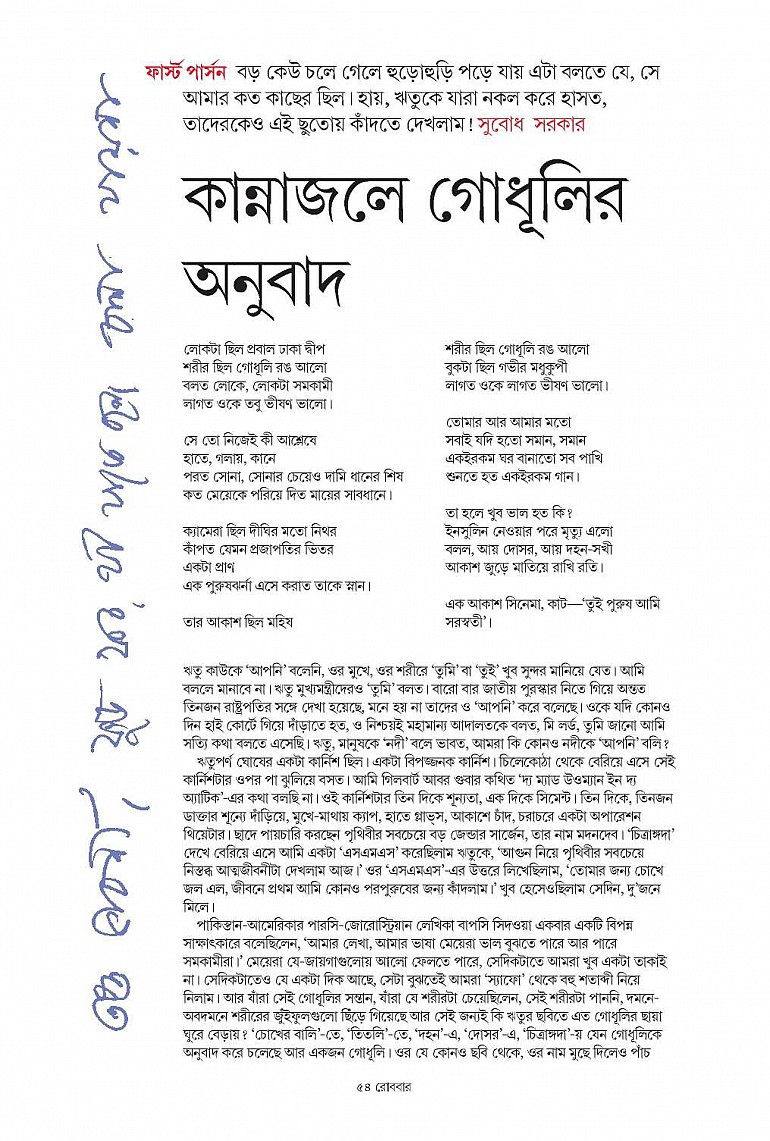 ফার্স্ট পার্সন বড় কেউ চলে গেলে হুড়োহুড়ি পড়ে যায় এটা বলতে যে, সে
আমার কত কাছের ছিল। হায়, ঋতুকে যারা নকল করে হাসত,
তাদেরকেও এই ছুতোয় কাঁদতে দেখলাম! সুবোধ সরকার
কান্নাজলে গোধূলির
অনুবাদ
লোকটা ছিল প্রবাল ঢাকা দ্বীপ
শরীর ছিল গোধূলি রঙ আলো
বলত লোকে, লোকটা সমকামী
লাগত ওকে তবু ভীষণ ভালো।
সে তো নিজেই কী আশ্লেষে
হাতে, গলায়, কানে
পরত সোনা, সোনার চেয়েও দামি ধানের শিষ
কত মেয়েকে পরিয়ে দিত মায়ের সাবধানে।
ক্যামেরা ছিল দীঘির মতো নিথর
কাঁপত যেমন প্রজাপতির ভিতর
একটা প্রাণ
এক পুরুষঝর্না এসে করাত তাকে স্নান।
তার আকাশ ছিল মহিষ
শরীর ছিল গোধূলি রঙ আলো
বুকটা ছিল গভীর মধুকুপী
লাগত ওকে লাগত ভীষণ ভালো।
তোমার আর আমার মতো
সবাই যদি হতো সমান, সমান
একইরকম ঘর বানাতো সব পাখি
শুনতে হত একইরকম গান।
তা হলে খুব ভাল হত কি?
ইনসুলিন নেওয়ার পরে মৃত্যু এলো
বলল, আয় দোসর, আয় দহন-সখী
আকাশ জুড়ে মাতিয়ে রাখি রতি।
এক আকাশ সিনেমা, কাট—‘তুই পুরুষ আমি
সরস্বতী’।
ঋতু কাউকে ‘আপনি’ বলেনি, ওর মুখে, ওর শরীরে ‘তুমি’ বা ‘তুই’ খুব সুন্দর মানিয়ে যেত। আমি
বললে মানাবে না। ঋতু মুখ্যমন্ত্রীদেরও ‘তুমি’ বলত। বারো বার জাতীয় পুরস্কার নিতে গিয়ে অন্তত
তিনজন রাষ্ট্রপতির সঙ্গে দেখা হয়েছে, মনে হয় না তাদের ও ‘আপনি’ করে বলেছে। ওকে যদি কোনও
দিন হাই কোর্টে গিয়ে দাঁড়াতে হত, ও নিশ্চয়ই মহামান্য আদালতকে বলত, মি লর্ড, তুমি জানো আমি
সত্যি কথা বলতে এসেছি। ঋতু, মানুষকে ‘নদী’ বলে ভাবত, আমরা কি কোনও নদীকে ‘আপনি’ বলি?
ঋতুপর্ণ ঘোষের একটা কার্নিশ ছিল। একটা বিপজ্জনক কার্নিশ। চিলেকোঠা থেকে বেরিয়ে এসে সেই
কার্নিশটার ওপর পা ঝুলিয়ে বসত। আমি গিলবার্ট আবর গুবার কথিত ‘দ্য ম্যাড উওম্যান ইন দ্য
অ্যাটিক’-এর কথা বলছি না। ওই কার্নিশটার তিন দিকে শূন্যতা, এক দিকে সিমেন্ট। তিন দিকে, তিনজন
ডাক্তার শূন্যে দাঁড়িয়ে, মুখে-মাথায় ক্যাপ, হাতে গ্লাভ্‌স, আকাশে চাঁদ, চরাচরে একটা অপারেশন
থিয়েটার। ছাদে পায়চারি করছেন পৃথিবীর সবচেয়ে বড় জেন্ডার সার্জেন, তার নাম মদনদেব। ‘চিত্রাঙ্গদা’
দেখে বেরিয়ে এসে আমি একটা ‘এসএমএস’ করেছিলাম ঋতুকে, ‘আগুন নিয়ে পৃথিবীর সবচেয়ে
নিস্তব্ধ আত্মজীবনীটা দেখলাম আজ।’ ওর ‘এসএমএস’-এর উত্তরে লিখেছিলাম, ‘তোমার জন্য চোখে
জল এল, জীবনে প্রথম আমি কোনও পরপুরুষের জন্য কাঁদলাম।’ খুব হেসেওছিলাম সেদিন, দু’জনে
মিলে।
পাকিস্তান-আমেরিকার পারসি-জোরোস্ট্রিয়ান লেখিকা বাপসি সিদওয়া একবার একটি বিপন্ন
সাক্ষাৎকারে বলেছিলেন, ‘আমার লেখা, আমার ভাষা মেয়েরা ভাল বুঝতে পারে আর পারে
সমকামীরা।’ মেয়েরা যে-জায়গাগুলোয় আলো ফেলতে পারে, সেদিকটাতে আমরা খুব একটা তাকাই
না। সেদিকটাতেও যে একটা দিক আছে, সেটা বুঝতেই আমরা ‘স্যাফো’ থেকে বহু শতাব্দী নিয়ে
নিলাম। আর যাঁরা সেই গোধূলির সন্তান, যাঁরা যে শরীরটা চেয়েছিলেন, সেই শরীরটা পাননি, দমনে-
অবদমনে শরীরের জুঁইফুলগুলো ছিঁড়ে গিয়েছে আর সেই জন্যই কি ঋতুর ছবিতে এত গোধূলির ছায়া
ঘুরে বেড়ায়? ‘চোখের বালি’-তে, ‘তিতলি’-তে, ‘দহন’-এ, ‘দোসর’-এ, ‘চিত্রাঙ্গদা’-য় যেন গোধূলিকে
অনুবাদ করে চলেছে আর একজন গোধূলি। ওর যে কোনও ছবি থেকে, ওর নাম মুছে দিলেও পাঁচ
৫৪ রোববার